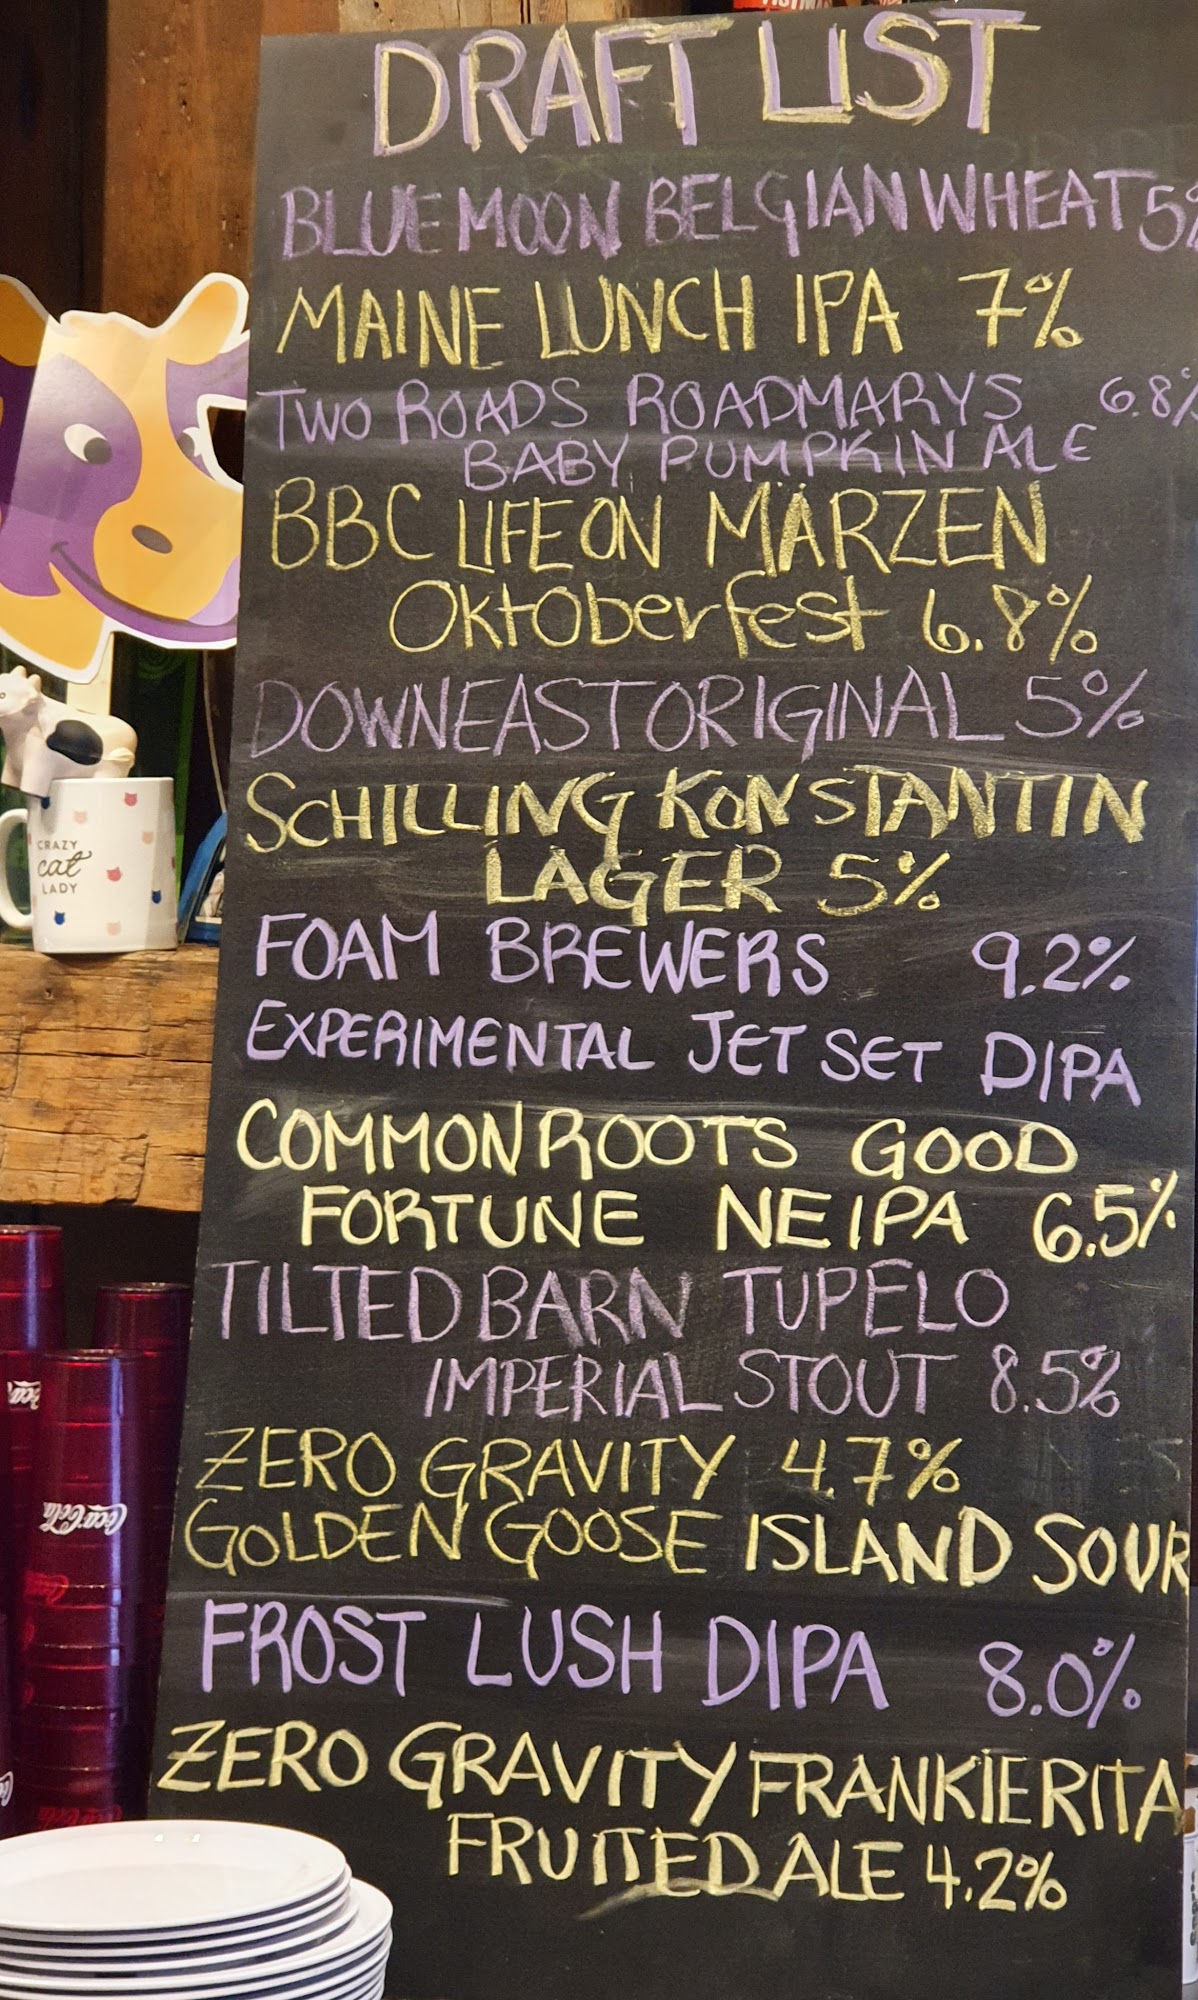 DRAFT LIST
BLUE MOON BELGIAN WHEAT 5%
MAINE LUNCH IPA 7%
TWO ROADS ROADMARYS 6.8%
BABY PUMPKIN ALE
BBC LIFE ON MÄRZEN
Oktoberfest 6.8%
DOWNEAST ORIGINAL 5%
SCHILLING KONSTANTIN
LAGER 5%
FOAM BREWERS 9.2%
EXPERIMENTAL JET SET DIPA
COMMON ROOTS GOOD
FORTUNE NEIPA 6.5%
TILTED BARN TUPELO
IMPERIAL STOUT 8.5%
ZERO GRAVITY 4.7%
GOLDEN GOOSE ISLAND SOUR
FROST LUSH DIPA 8.0%
ZERO GRAVITY FRANKIERITA
FRUITED ALE 4.2%
CRAZY
cat
LADY
Coca-Cola